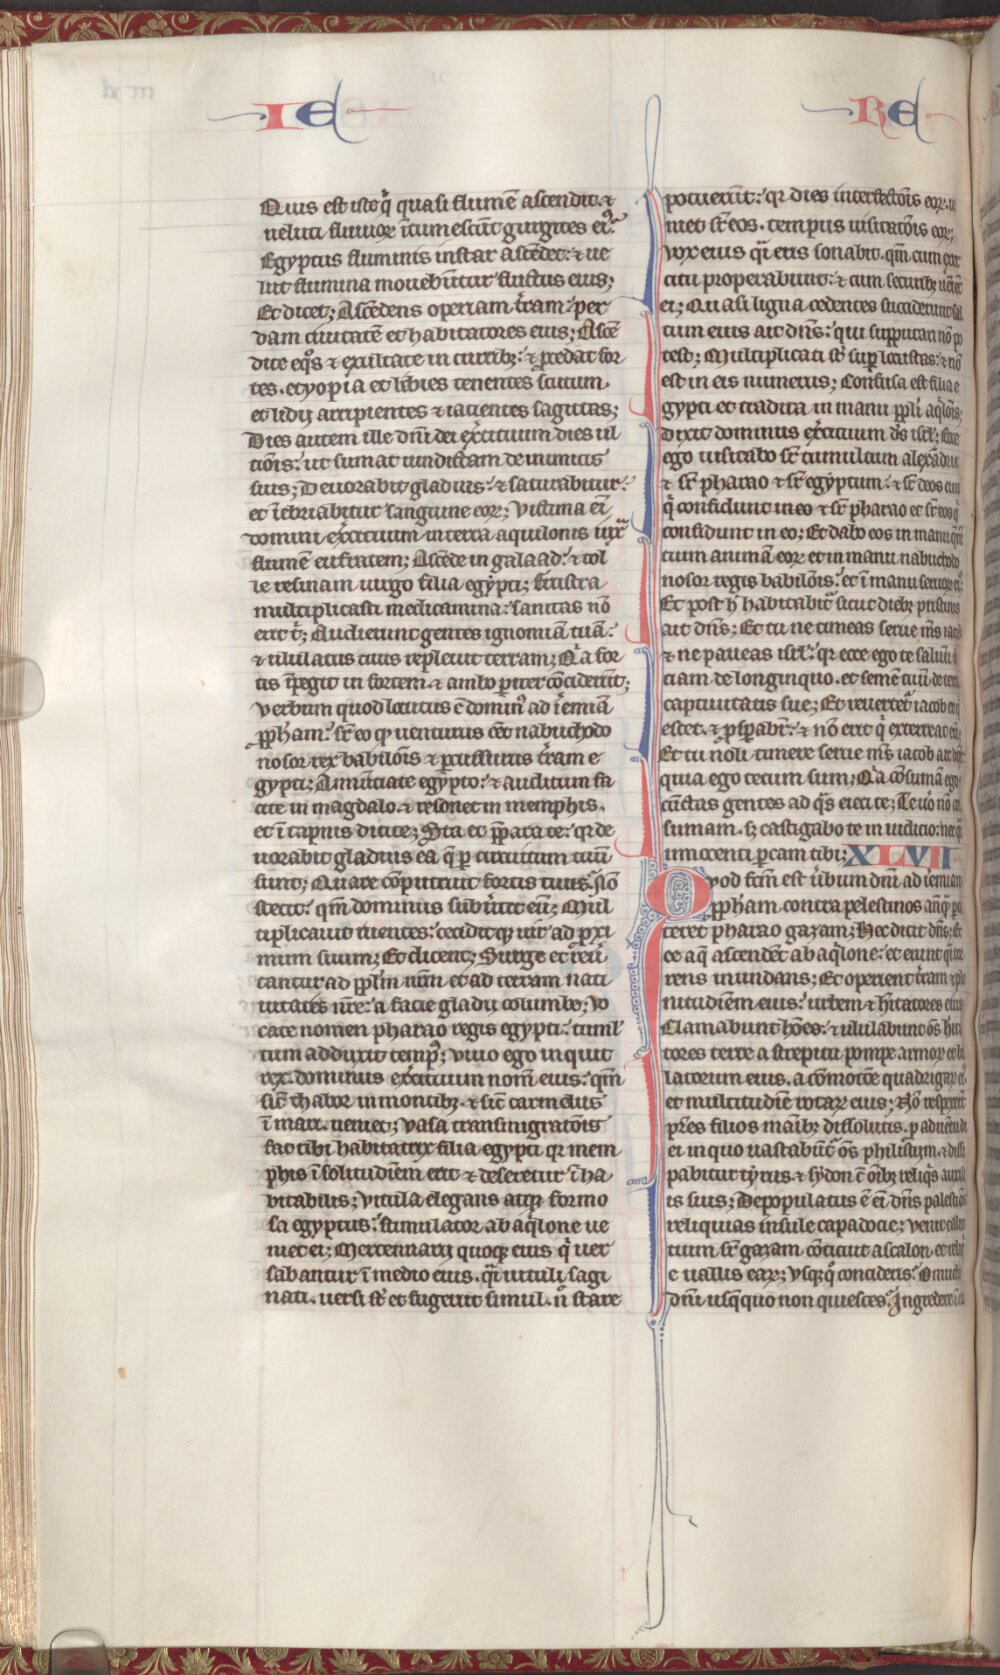 IE RE
Quis est iste q̇ quasi flumē ascendit. ⁊
veluti fluuioꝝ ītumescūt gurgites eiꝰ?
Egyptus fluminis instar ascēdet: ⁊ ue
lut flumina mouebūtur fluctus eius;
Et dicet; Ascēdens operiam t̄ram: per
dam ciuitatē et habitatores eius; Ascē
dite eq̊s ⁊ exultate in curribꝫ: ⁊ ꝓcedāt for
tes. etyopia et libies tenentes scutum.
et lidij arripientes ⁊ iacientes sagittas;
Dies autem ille dn̄i dei exc̄ituum dies ul
tiōis: ut sumat uindictam de inimicis
suis; Deuorabit gladius: ⁊ saturabitur:
et īebriabitur sanguine eoꝝ; Victima ei̅
domini exc̄ituum in terra aquilonis iux̄
flumē eufratem; Ascēde in galaad: ⁊ tol
le resinam uirgo filia egypti; Frustra
multiplicasti medicamina: sanitas nō
erit t̄; Audierunt gentes ignomiā tuā:
⁊ ululatus tuus repleuit terram; Q̇a for
tis īpegit in fortem. ⁊ ambo pariter cōciderūt;
Verbum quod locutus ē dominꝰ ad ieremiā
ꝓpham: sr̄ eo ꝙ uenturus eēt nabuchodo
nosor rex babilōis ⁊ percussurus t̄ram e
gypti; Annūtiate egypto: ⁊ auditum fa
cite in magdalo. ⁊ resonet in memphis.
et ī tapnis dicite; Sta et p̄para te: qr de
uorabit gladius ea q̄ ꝑ circuitum tuū
sunt; Quare cōputruit fortis tuus: Nō
stetit: qm̄ dominus subūtit eū; Mul
tiplicauit ruentes: ceciditqꝫ uir ad ꝓxi
mum suum; Et dicent; Surge et reū
tamur ad ppl̄m nr̄m et ad terram nati
uitatis nr̄e: a facie gladij columbe; Vo
cate nomen pharao regis egypti: tumul
tum adduxit tempꝰ; Viuo ego inquit
rex. dominus exc̄ituum nom̄ eius: qm̄
sic̄ thabor in montibꝫ. ⁊ sic̄ carmelus
ī mari. ueniet; Vasa transmigratōis
fac tibi habitatrix filia egypti qr mem
phis ī solitudiēm erit ⁊ deseretur ī ha
bitabilis; Vitula elegans atqꝫ formo
sa egyptus: stimulator ab aq̇lone ue
niet ei; Mercennarij quoqꝫ eius q̇ uer
sabantur ī medio eius. q̄i uituli sagi
nati. uersi st̄ et fugerūt simul. n̊ stare
potuerūt: qr dies interfectōis eoꝝ. ue
niet sr̄ eos. tempus uisitatōis eoꝝ;
Vox eius q̄i eris sonabit. qm̄ cum exer
citu properabunt: ⁊ cum securibꝫ ueniēt
ei; Quasi ligna cedentes succiderunt sal
tum eius ait dn̄s: qui supputari nō po
test; Multiplicati st̄ sup̄ locustas: ⁊ nō
est in eis numerus; Confusa est filia e
gypti et tradita in manu ppl̄i aq̇lōis;
Dixit dominus exc̄ituum ds̄ isrl̄; Ecce
ego uisitabo sr̄ tumultum alexādrie
⁊ sr̄ pharao ⁊ sr̄ egyptum: ⁊ sr̄ deos eius
q̇ confidunt in eo ⁊ sr̄ pharao et sr̄ eos q̇
confidunt in eo; Et dabo eos in manu q̄re
tium animā eoꝝ et in manu nabuchodo
nosor regis babilōis. et ī manu seruoꝝ eiꝰ;
Et post h̄ habitabit̄ sicut diebꝫ pristinis
ait dn̄s; Et tu ne timeas serue ms̄ iacob
⁊ ne paueas isrl̄: qr ecce ego te saluū fa
ciam de longinquo. et semē tuū de terra
captiuitatis sue; Et reuertet̄ iacob ⁊ q̇
escet. ⁊ ꝓsperabit̄: ⁊ nō erit q̇ exterreat eū;
Et tu noli timere serue ms̄ iacob ait dn̄s:
quia ego tecum sum; Q̇a cōsumā ego
cūctas gentes ad q̄s eieci te; Te uō nō cō
sumam. sꝫ castigabo te in iudicio: nec q̄i
innocenti parcam tibi; XLVII
Quod fctm̄ est ūbum dn̄i ad ieremiam
ꝓpham contra pelestinos anteq̄ percu
teret pharao gazam; Hec dicit dn̄s; Ec
ce aq̄ ascendēt ab aq̇lone: et erunt q̄i tor
rens inundans; Et operient t̄ram ⁊ ple
nitudiēm eius: urbem ⁊ hītatores eius;
Clamabunt hōes: ⁊ ululabunt ōs hīta
tores terre a strepitu pompe armoꝝ ⁊ bel
latorum eius. a cōmotōe quadrigaꝝ eiꝰ
et multitudiē rotaꝝ eius; Nō respexerūt
pr̄es filios manibꝫ dissolutis. ꝓ aduentu di
ei in quo uastabūt̄ ōs philistijm. ⁊ dissi
pabitur tyrus ⁊ sydon c̄ ōibꝫ reliq̇s auxili
is suis; Depopulatus ē ei̅ dn̄s palestinos
reliquias insule capadocie; Venit calui
tium sr̄ gazam. cōticuit ascalon. et reliq̇
e uallis eaꝝ; Vsqꝫq̊ concideris: O mucro
dn̄i usq̄quo non quiesces: Ingredere ī ua